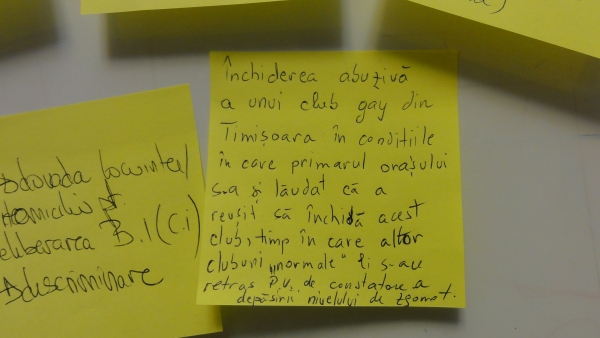 Închiderea abuzivă
a unui club gay din
Timișoara în condițiile
în care primarul orașului
s-a și lăudat că a
reușit să închidă acest
club, timp în care altor
cluburi „normale" li s-au
retras P.V. de constatare a
depășirii nivelului de zgomot.
Dovada locuinței/
domiciliu pt.
eliberarea B.I (C.i)
discriminare